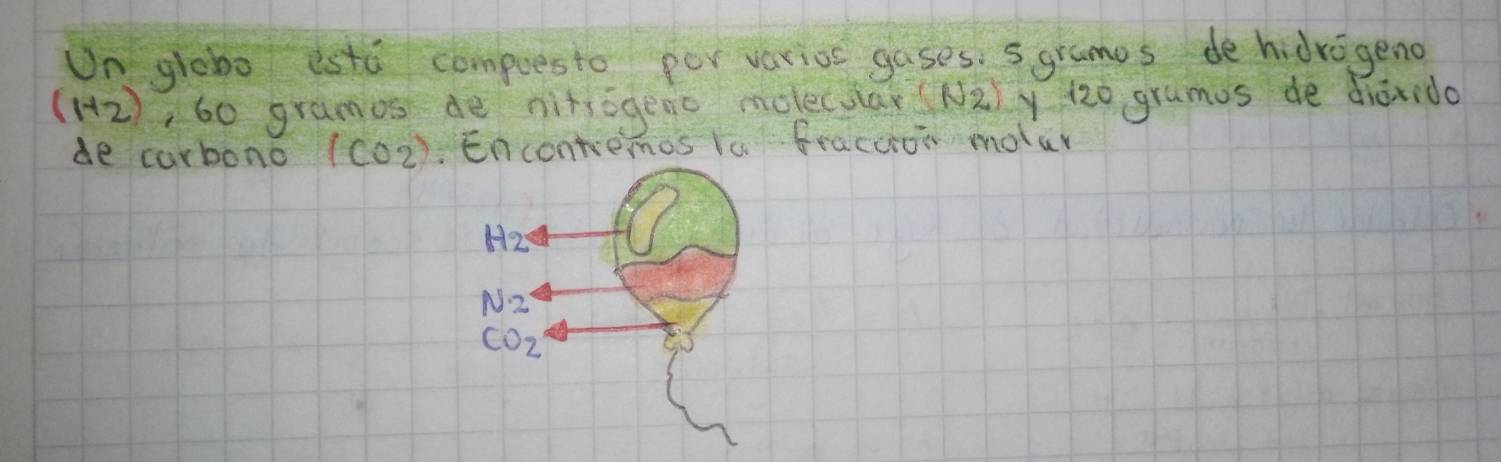 Un globo está compuesto por varios gases: 5 gramos de hidrógeno
(H2), 60 gramos de nitrógeno molecular (N2) y 120 gramos de dióxido
de carbono (CO2). Encontremos la fracción molar
H2
N2
CO2